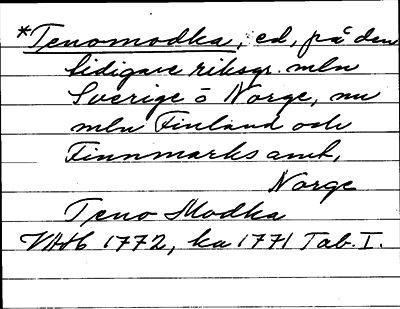 *Tenomodka, ed, på den
tidigare riksgr. mln
Sverige o Norge, nu
mln Finland och
Finnmarks amt,
Norge
Teno Modka
VAH 1772, ka 1771 Tab. I.